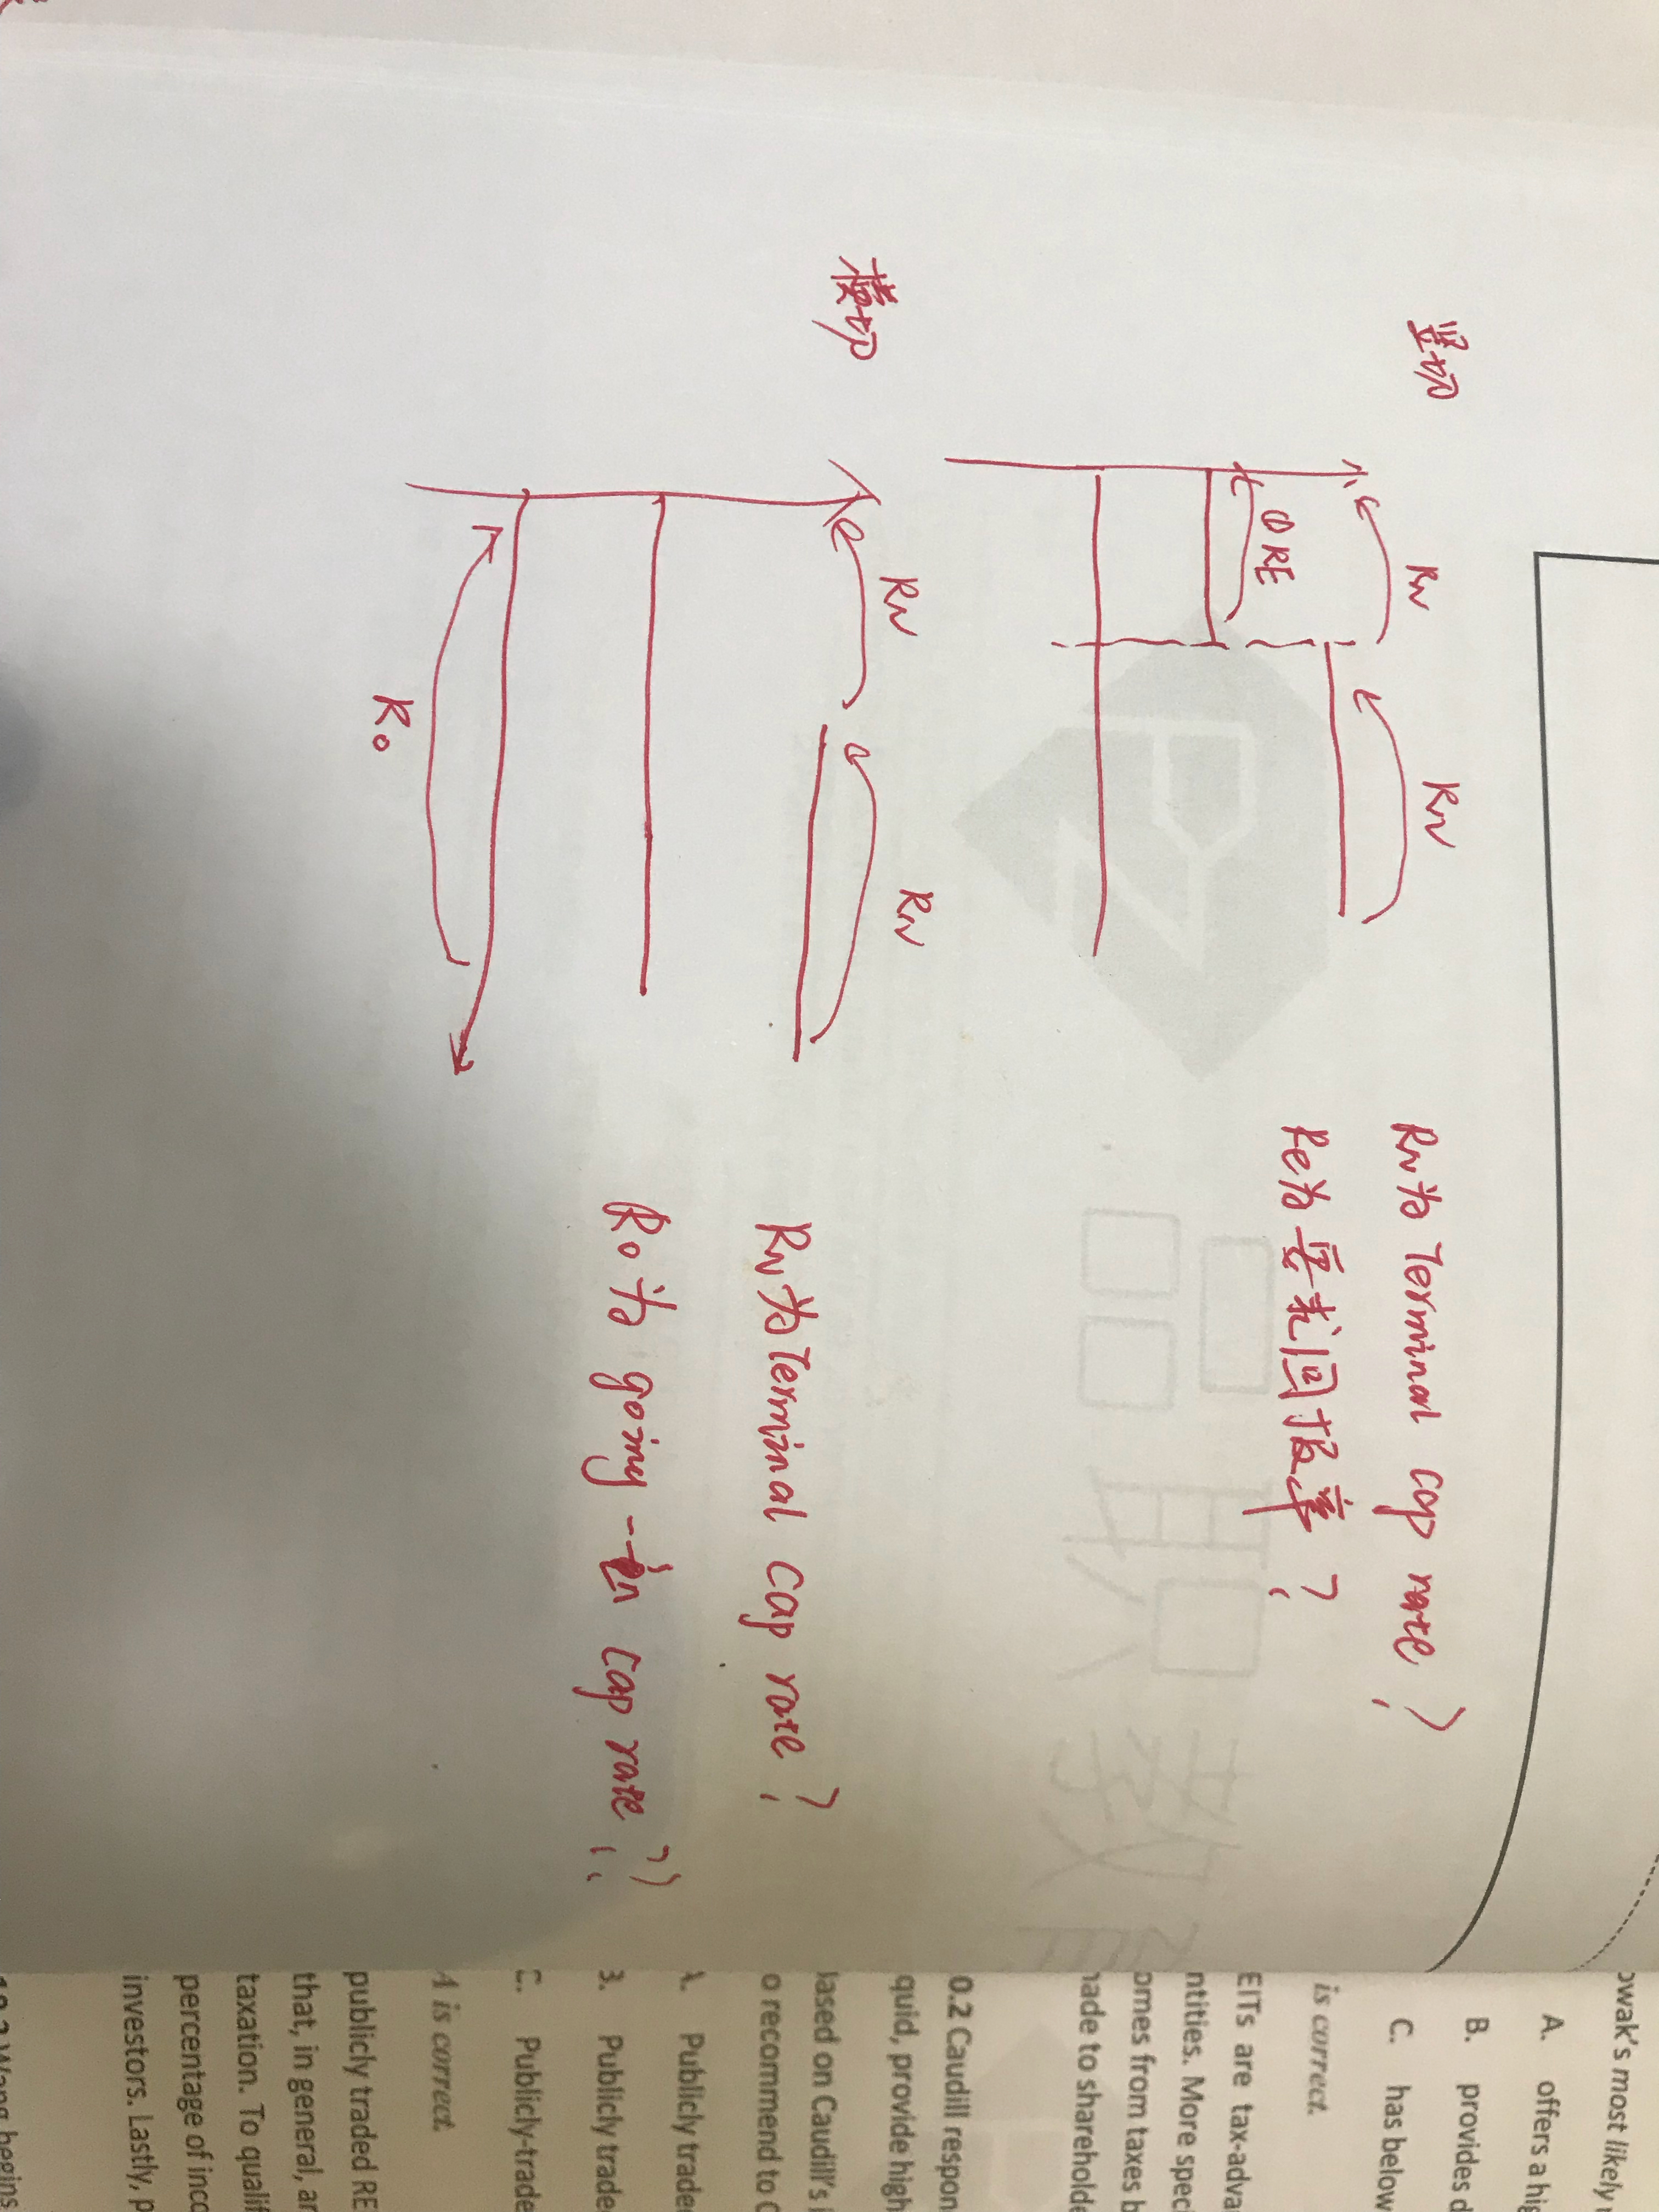 竖切
RN
RN
ORE
RN为Terminal cap rate?
Re为要求回报率?
横切
RN
RN
R0
RN为Terminal cap rate?
R0为going-in cap rate??
owak's most likely
A. offers a hig
B. provides d
C. has below
is correct.
EITs are tax-adva
ntities. More speci
omes from taxes b
nade to shareholde
0.2 Caudill respon
quid, provide high
ased on Caudil's i
o recommend to C
A. Publicly trade
3. Publicly trade
C. Publicly-trade
A is correct.
publicly traded RE
that, in general, ar
taxation. To qualif
percentage of inco
investors. Lastly, p